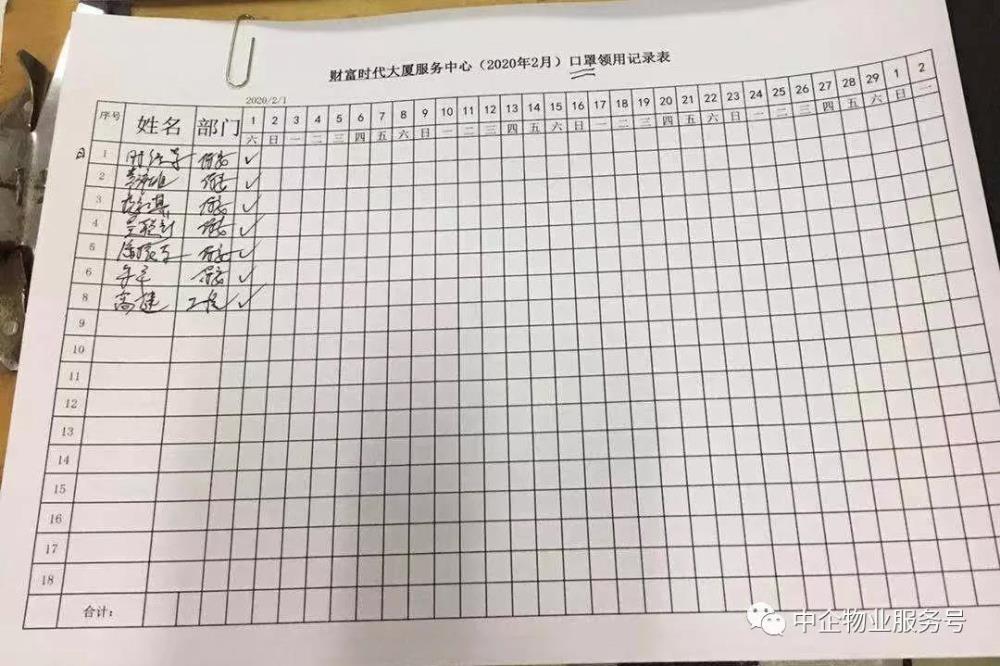 财富时代大厦服务中心（2020年2月）口罩领用记录表
2020/2/1
序号 姓名 部门 1 2 3 4 5 6 7 8 9 10 11 12 13 14 15 16 17 18 19 20 21 22 23 24 25 26 27 28 29 1 2
六 日 一 二 三 四 五 六 日 一 二 三 四 五 六 日 一 二 三 四 五 六 日 一 二 三 四 五 六 日 一
1 保安 ✓
2 保安 ✓
3 保安 ✓
4 保安 ✓
5 保安 ✓
6 保安 ✓
8 高建 工程 ✓
9
10
11
12
13
14
15
16
17
18
合计：
中企物业服务号